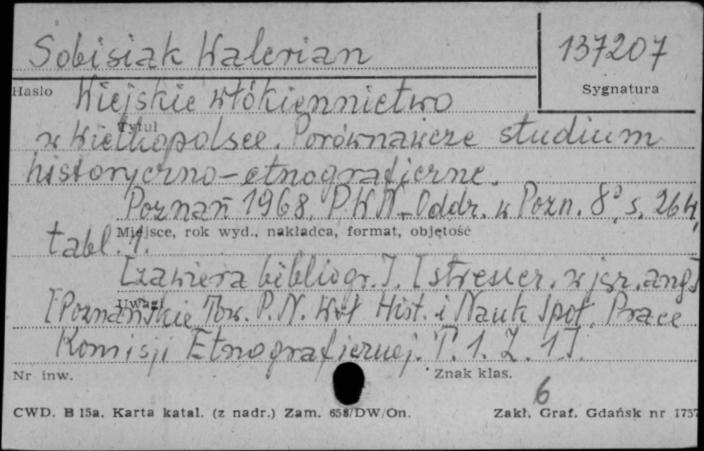 Sobisiak Walerian
137207
Hasło
Sygnatura
Wiejskie włókiennictwo
Tytuł
w Wielkopolsce. Porównawcze studium
historyczno-etnograficzne.
Poznań 1968. P.W.N. Oddz. w Pozn. 8°, s. 264,
Miejsce, rok wyd., nakładca, format, objętość
tabl. 1.
[zawiera bibliogr.]. [streszcz. w jęz. ang.]
Uwagi
[Poznańskie Tow. P. N. Wył Hist. i Nauk Społ. Prace
Komisji Etnograficznej. T. 1. Z. 1].
Nr inw.
Znak klas.
6
CWD. B 15a. Karta katal. (z nadr.) Zam. 658/DW/On.
Zakł. Graf. Gdańsk nr 1757